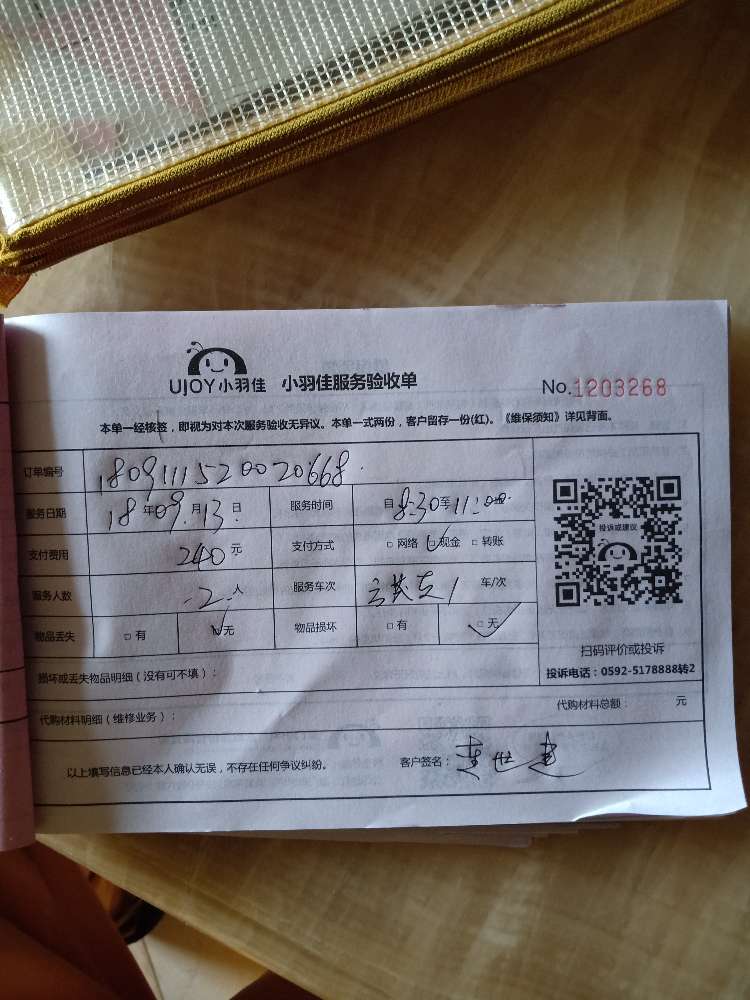 UJOY小羽佳 小羽佳服务验收单 No.1203268
本单一经核签，即视为对本次服务验收无异议。本单一式两份，客户留存一份(红)。《维保须知》详见背面。
订单编号 1809111520020668
服务日期 18年09月13日 服务时间 自8:30至11:00
支付费用 240元 支付方式 □网络 ☑现金 □转账
服务人数 2人 服务车次 1 车/次
物品丢失 □有 ☑无 物品损坏 □有 ☑无
投诉或建议
扫码评价或投诉
投诉电话：0592-5178888转2
损坏或丢失物品明细（没有可不填）：
代购材料明细（维修业务）： 代购材料总额： 元
以上填写信息已经本人确认无误，不存在任何争议纠纷。 客户签名：